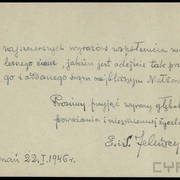 najszczerszych wyrazów współczucia w
lesnego ciosu, jakim jest odejście tak pra
go i oddanego swym najbliższym
Prosimy przyjąć wyrazy głębok
poważania i niezmiennej życzl
E. i S.
nań 22.I.1946 r.
CYF